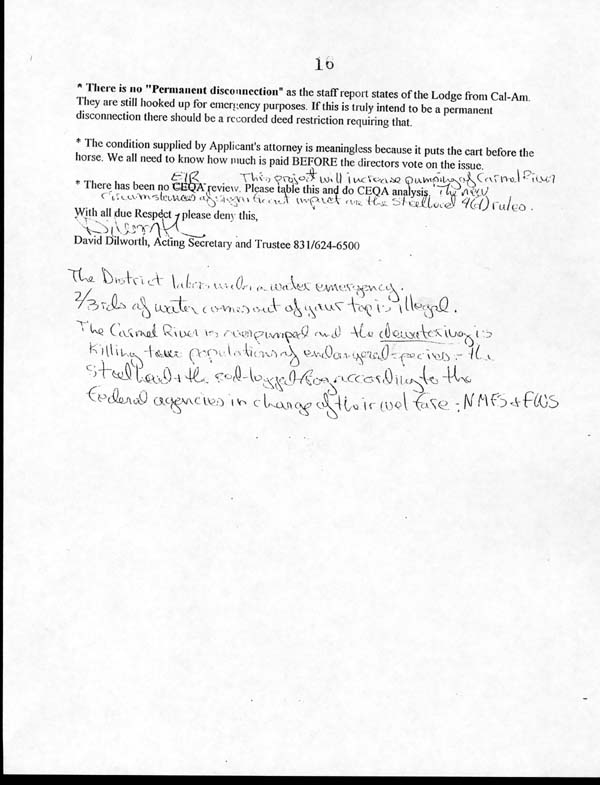 16
* There is no "Permanent disconnection" as the staff report states of the Lodge from Cal-Am.
They are still hooked up for emergency purposes. If this is truly intend to be a permanent
disconnection there should be a recorded deed restriction requiring that.
* The condition supplied by Applicant's attorney is meaningless because it puts the cart before the
horse. We all need to know how much is paid BEFORE the directors vote on the issue.
EIR This project will increase pumping of Carmel River
* There has been no CEQA review. Please table this and do CEQA analysis. The new
circumstances of significant impact are the Steelhead 4(d) rules.
With all due Respect, please deny this,
David Dilworth, Acting Secretary and Trustee 831/624-6500
The District labors under a water emergency.
2/3rds of water comes out of your tap is illegal.
The Carmel River is overpumped and the dewatering is
killing two populations of endangered species - the
Steelhead + the red-legged frog according to the
Federal agencies in charge of their welfare - NMFS + FWS